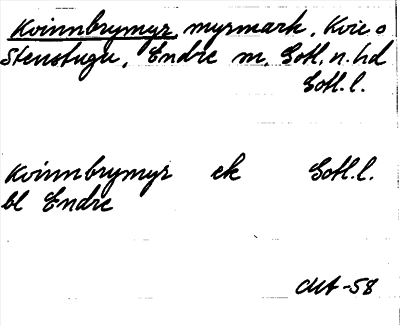 Kvinnbrymyr, myrmark, Kvie o
Stenstugu, Endre sn, Gotl. n. hd
Gotl. l.
Kvinnbrymyr ek Gotl. l.
bl Endre
-58